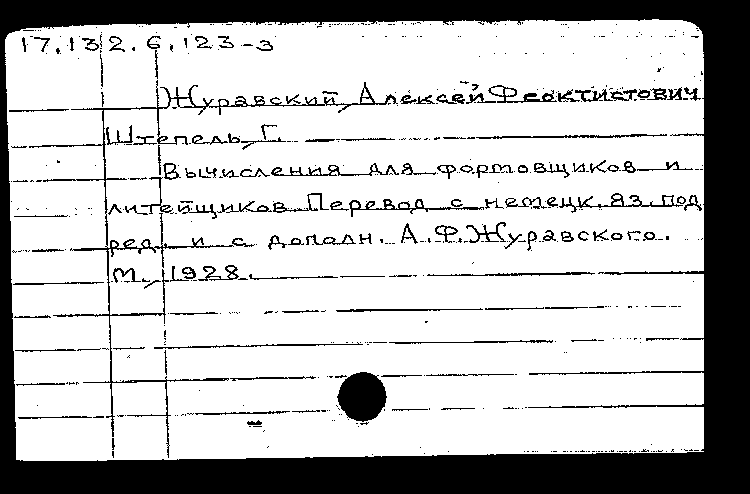 17.132.6.123-з
Журавский, Алексей Феоктистович
Штепель, Г.
Вычисления для фортовщиков и
литейщиков. Перевод с немецк. яз. под
ред. и с дополн. А.Ф.Журавского.
М., 1928.